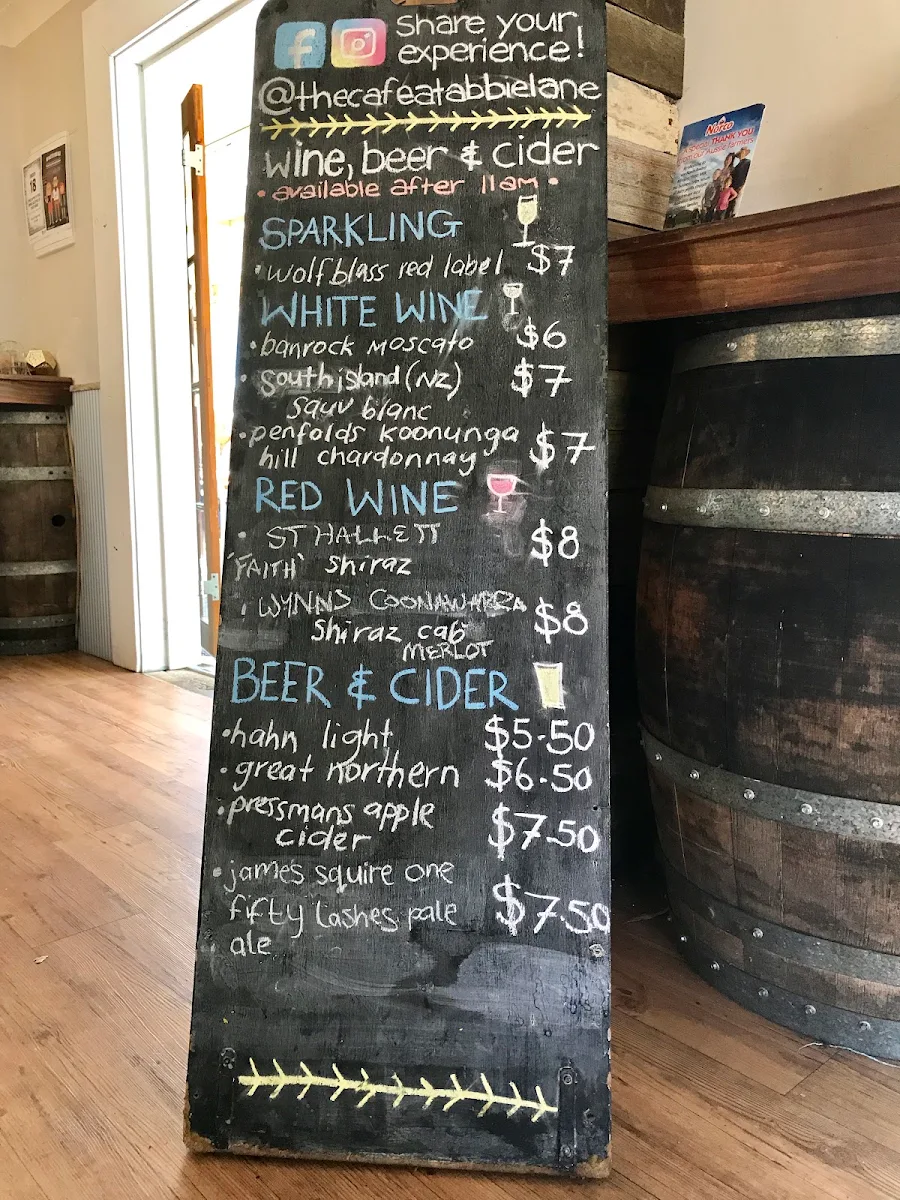 Share your
experience!
@thecafeatabbielane
wine, beer & cider
• available after 11am •
SPARKLING
• wolf blass red label $7
WHITE WINE
• banrock moscato $6
• South island (NZ) $7
sauv blanc
• penfolds koonunga
hill chardonnay $7
RED WINE
• ST HALLETT $8
'FAITH' shiraz
• WYNNS COONAWARRA $8
Shiraz cab
MERLOT
BEER & CIDER
• hahn light $5.50
• great northern $6.50
• pressmans apple
cider $7.50
• james squire one
fifty lashes pale $7.50
ale
Norco
THANK YOU
18